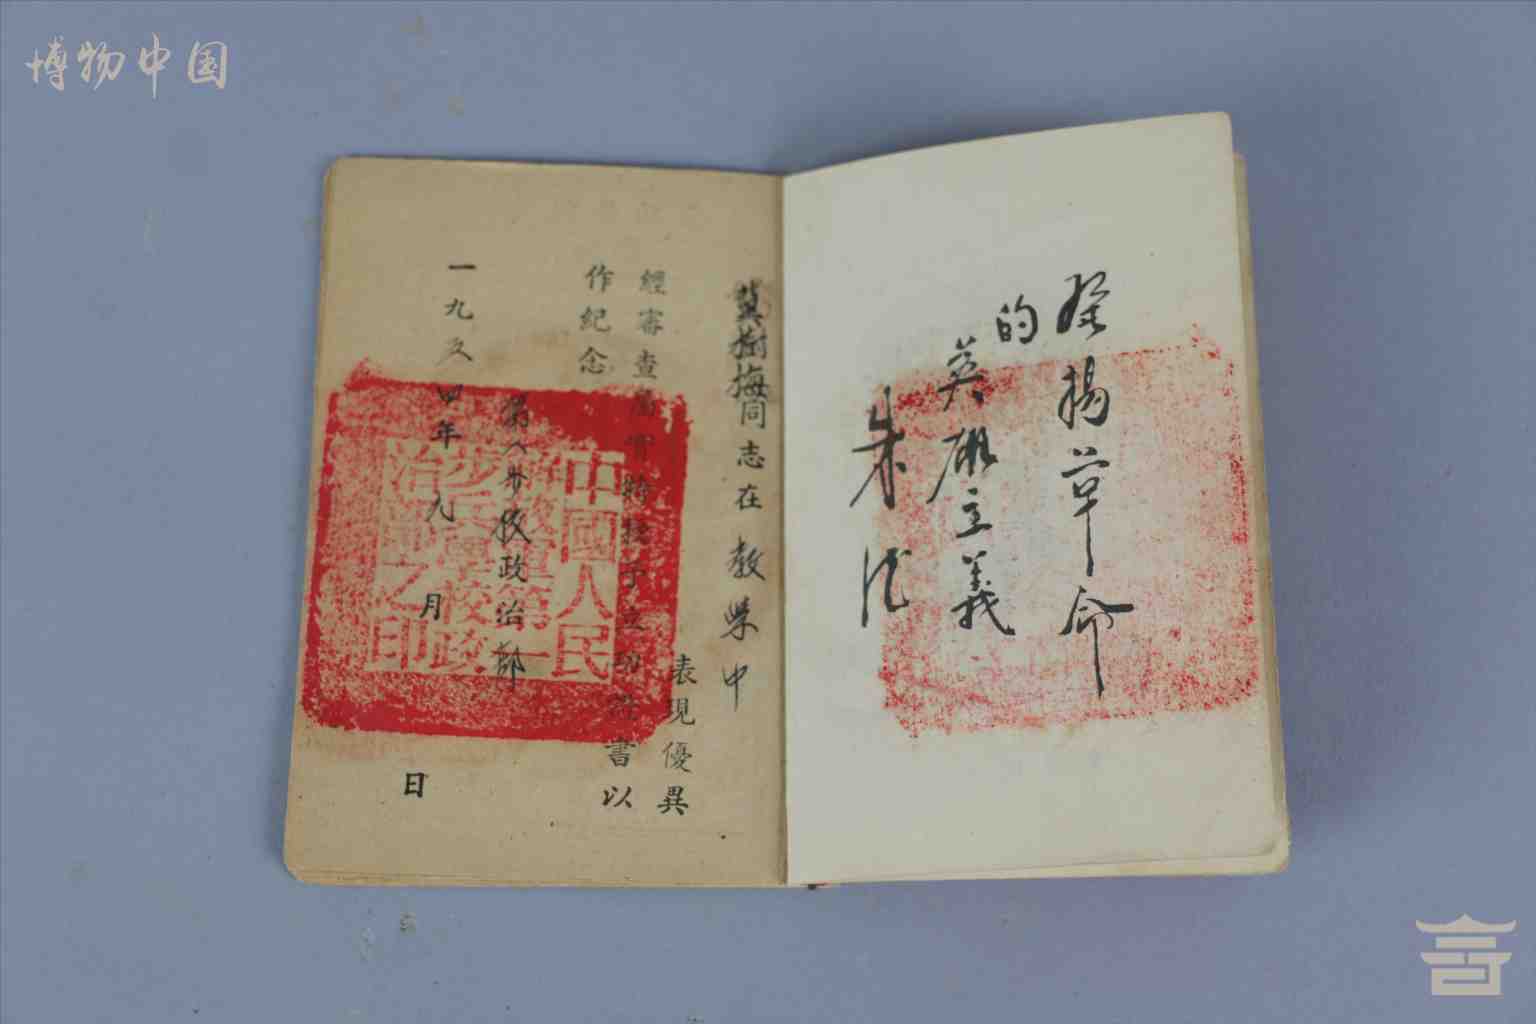 博物中国
发扬革命
的
英雄主義
朱德
冀樹梅同志在教學中
表現優異
經審查屬實特授予立功證書以
作紀念
第八步校政治部
一九五四年九月 日
中國人民
解放軍第一
步兵學校政
治部之印